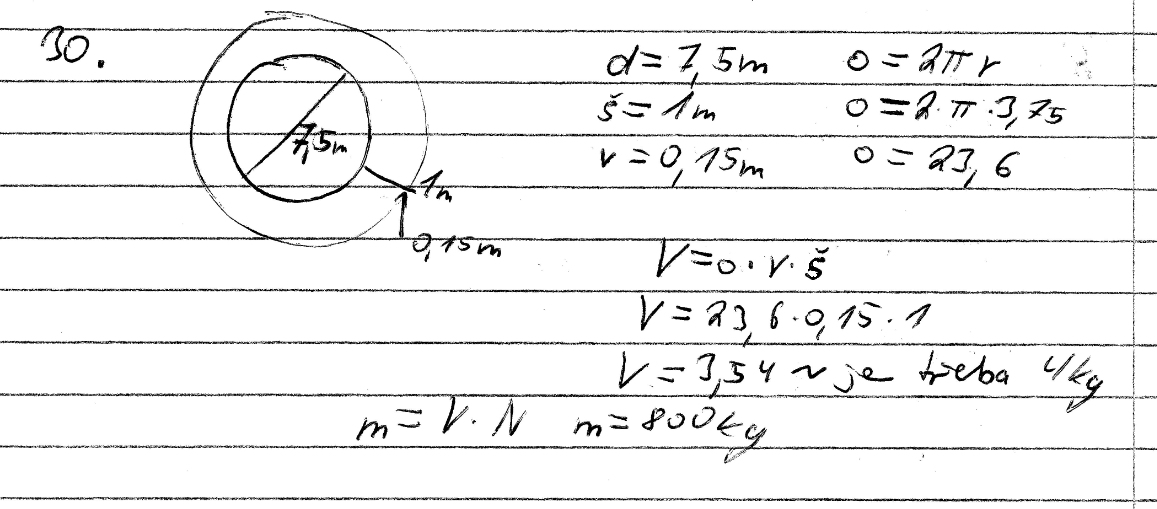 30.
7,5m
1m
0,15m
d = 7,5m o = 2πr
š = 1m o = 2·π·3,75
v = 0,15m o = 23,6
V = o·v·š
V = 23,6·0,15·1
V = 3,54 ~ je třeba 4kg
m = V·N m = 800kg